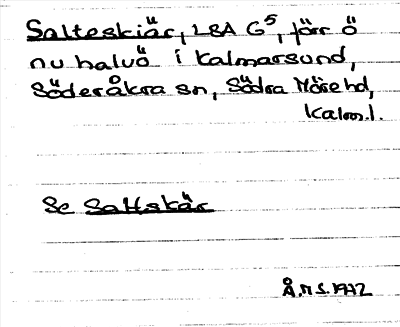 Salteskiär, LSA G5, förr ö
nu halvö i Kalmarsund,
Söderåkra sn, Södra Möre hd,
Kalm.l.
Se Saltskär